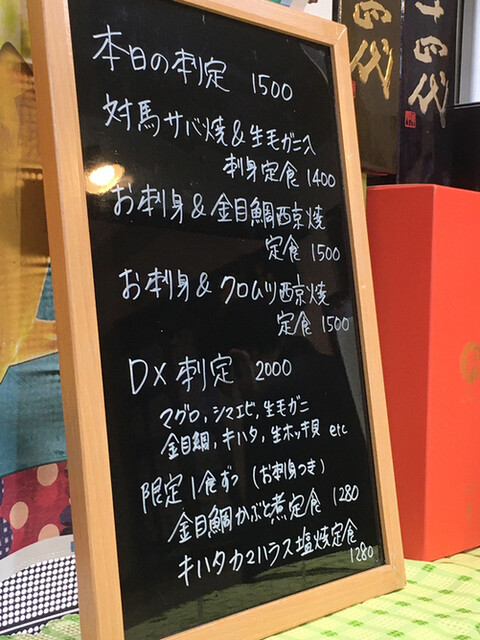 本日の刺定 1500
対馬サバ焼&生毛ガニ入
刺身定食 1400
お刺身&金目鯛西京焼
定食 1500
お刺身&クロムツ西京焼
定食 1500
DX 刺定 2000
マグロ,シマエビ,生毛ガニ
金目鯛,キハタ,生ホッキ貝 etc
限定1食ずつ (お刺身つき)
金目鯛かぶと煮定食 1280
キハタカマハラス塩焼定食
1280
四代
十四代